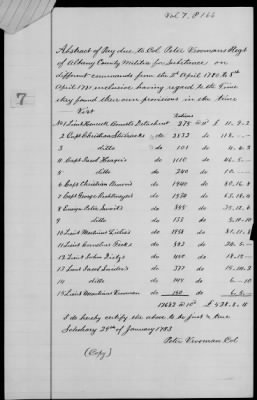 Vol. 7, P 166
7
Abstract of Pay due to Col. Peter Vroomans Regt
of Albany County Militia for Subsistence on
different commands from the 2d April 1780 to 8th
April 1781 inclusive, having regard to the time
they found their own provisions in the time
Viz't
Rations
No 1 Lieut Detachment 275 @ 10d £ 11.9.2
2 Capt Christian do 2832 118.
3 ditto do 101 4.4.2
4 Capt Jacob Hager's do 1110 46.5.
5 ditto do 240 10.
6 Capt Christian Brown's do 1940 80.16.8
7 Capt George Richtmeyer's do 1530 63.15.
8 Ensign Peter Swart's do 855 35.12.6
9 ditto do 133 5.10.10
10 Lieut Martinus do 81.11.8
11 Lieut Cornelius do
13 Lieut John Dietz's do 18.
17 Lieut Jacob Snider's do 377 15.14.2
14 ditto do 144 6.
15 Lieut Martinus Vrooman do
@ 10d £
I do hereby certify the above to be just & true
Schohary 29th of January 1783
Peter Vrooman Col
(Copy)